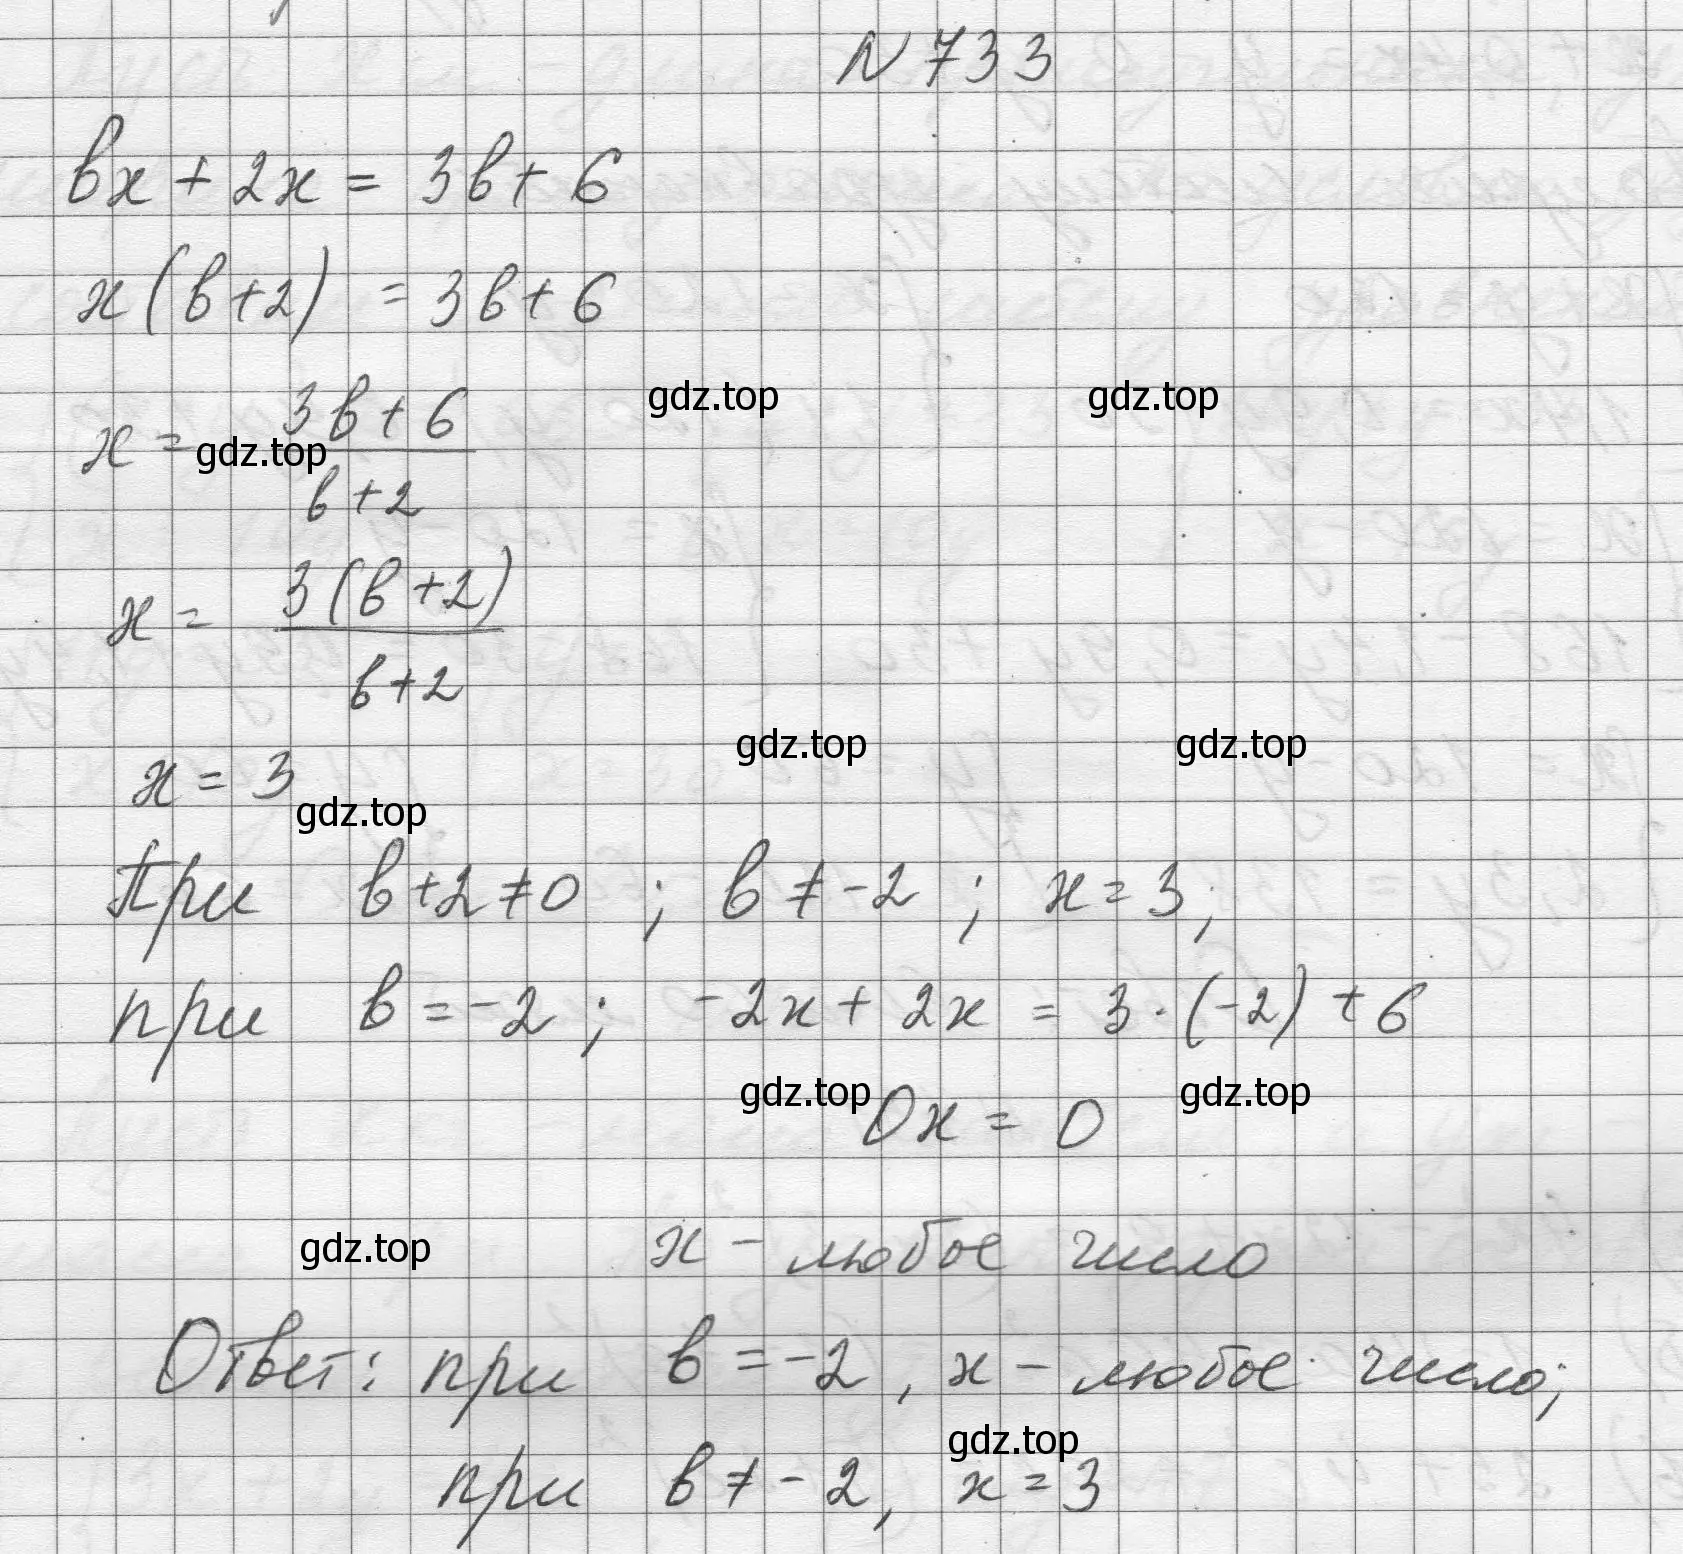 N 733
bx + 2x = 3b + 6
x(b+2) = 3b + 6
gdz.top gdz.top
x = 3b + 6 / b + 2
gdz.top
x = 3(b+2) / b + 2
gdz.top gdz.top
x = 3
gdz.top
При b+2≠0 ; b≠-2 ; x=3;
при b=-2; -2x + 2x = 3·(-2) + 6
gdz.top gdz.top
0x = 0
gdz.top
x - любое число
Ответ: при b=-2, x - любое число;
gdz.top
при b≠-2, x=3